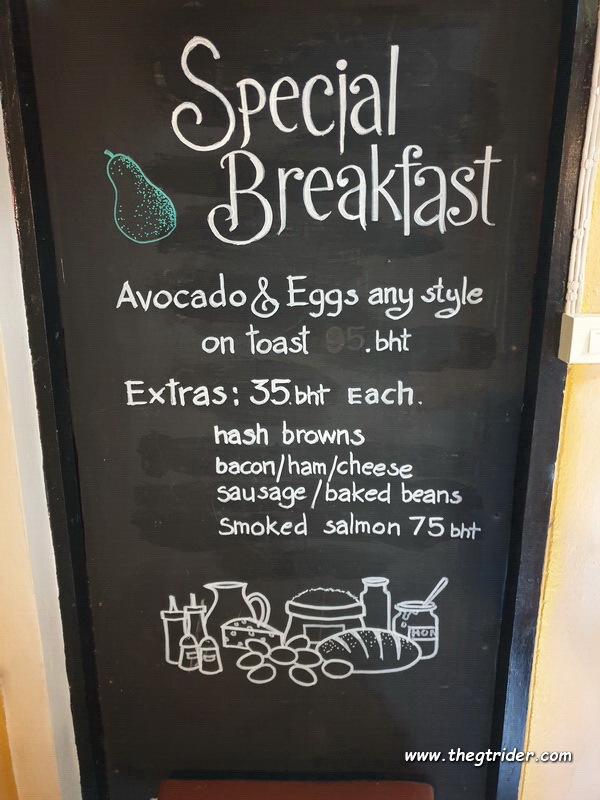 Special
Breakfast
Avocado & Eggs any style
on toast 95.bht
Extras: 35.bht Each.
hash browns
bacon/ham/cheese
sausage/baked beans
Smoked salmon 75 bht
HON
www.thegtrider.com